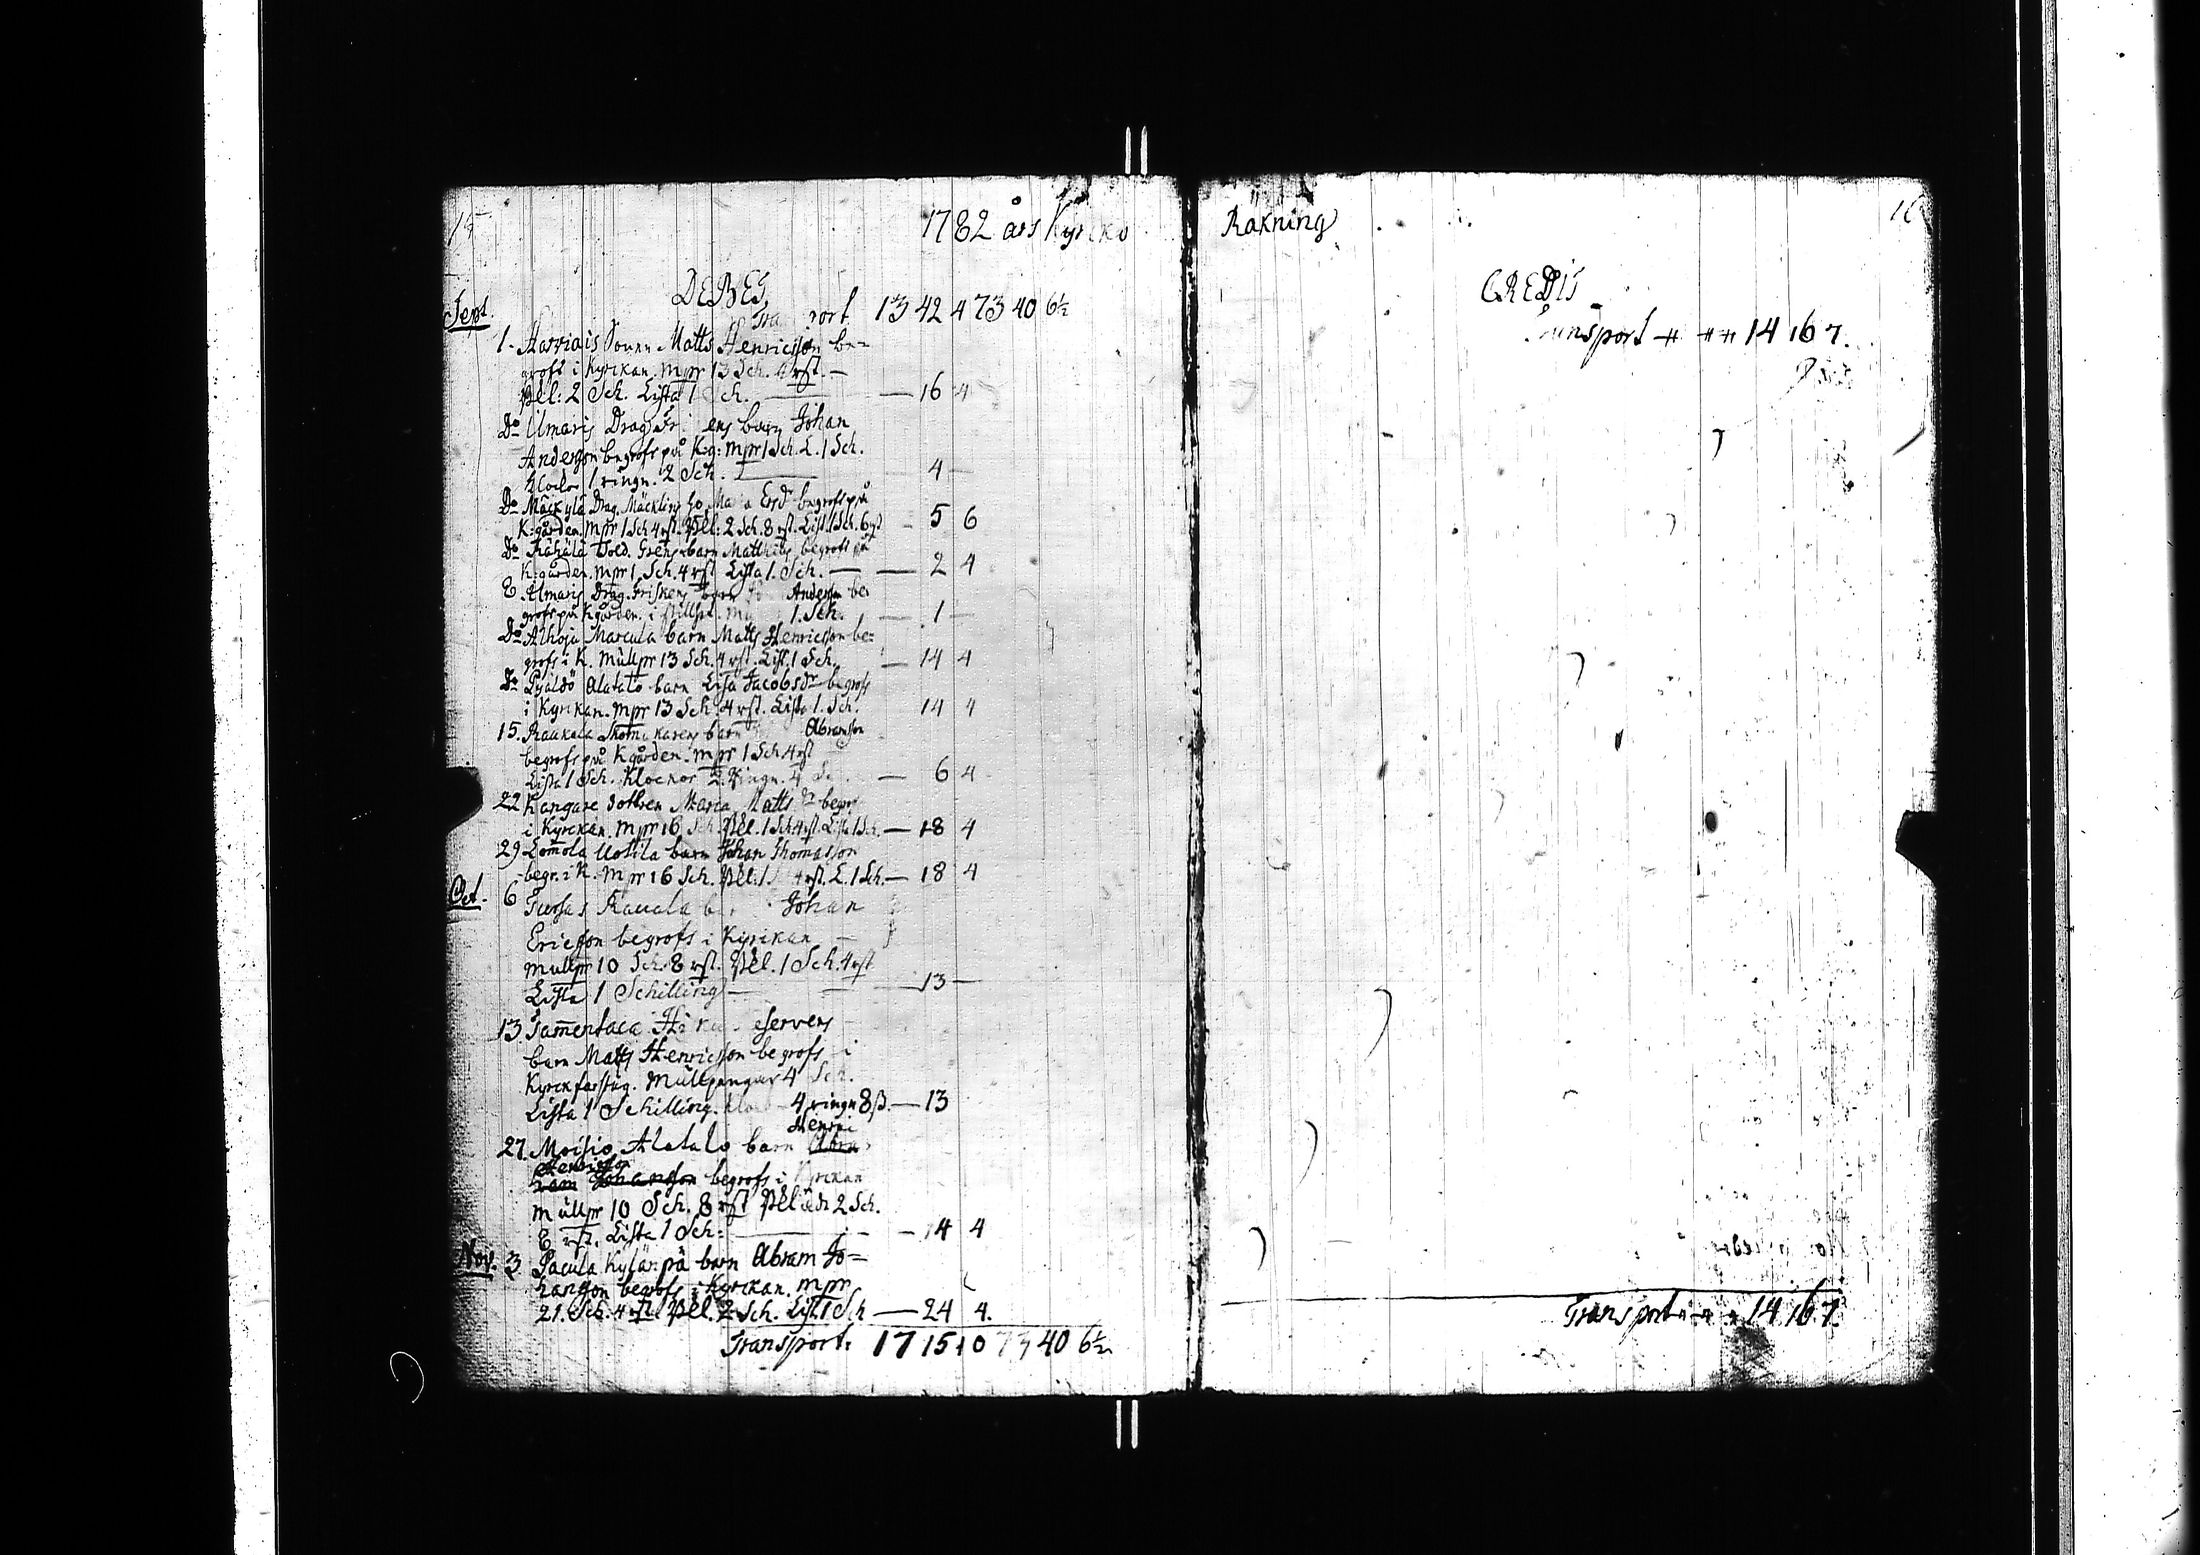 15
1782 års Kyrko
DEBES
Transport 13 42 4 73 40 6½
Sept.
1. Matts Henricsson be=
grofs i Kyrkan. mpr 13 Sch. 4 rst. —
Pll: 2 Sch. Lista 1 Sch. — 16 4
Do Ilmaris Drag. barn Johan
Andersson begrofs på K:g: mpr 1 Sch. L. 1 Sch.
1 ringn. 2 Sch. — 4 —
Do Mäckylä Drag. begrofs på
K:gården. mpr 1 Sch 4 rst. Pll: 2 Sch. 8 rst. List. 1 Sch. 6 rst — 5 6
Do Sold. barn Matthias begrofs på
K:gården. mpr 1. Sch. 4 rst Lista 1. Sch. — 2 4
8. Ilmaris Drag. Friskens barn Anderson be
grofs på Kgården. i 1. Sch. — 1 —
Do Alhoja Marcula barn Matts Henricsson be=
grofs i K. müllpr 13 Sch. 4 rst. List. 1 Sch. — 14 4
Do Alatalo barn Lisa Jacobsdr begrofs
i Kyrkan. mpr 13 Sch 4 rst. Lista 1. Sch. 14 4
15. Raukala barn Abramsson
begrofs på Kgården. mpr 1 Sch 4 rst
Lista 1 Sch. Klockor 2. Ringn. 4 — 6 4
22 Kangare dottren Maria Matts dr begrofs
i Kyrckan. mpr 16 Sch. Pll. 1 Sch 4 rst. Lista 1 Sch. — 18 4
29 Lom̄ola Uotila barn Johan Thomasson
begr. i K. mpr 16 Sch. Pll: 1 4 rst. L. 1 Sch. — 18 4
Oct. 6 Rauala Johan
Ericsson begrofs i Kyrckan —
mullpr 10 Sch. 8 rst. Pll. 1 Sch. 4 rst
Lista 1 Schilling — — 13 —
13. Tam̄entaca
barn Matts Henricsson begrofs i
Kyrckforstug. Müllpengar 4 Sch.
Lista 1 Schilling. 4 ringn 8 ß. — 13
Henric
27. Moisio Alatalo barn Abra
Henricsson
ham Johansson begrofs i Kyrckan
müllpr 10 Sch. 8 rst Pll 2 Sch.
8 rst. Lista 1 Sch: — 14 4
Nov. 3 Pacula Kylänpä barn Abram Jo=
hansson begrofs i Kyrckan. mpr
21. Sch. 4 rst. Pll. 2 Sch. List. 1 Sch — 24 4.
Transport. 17 15 10 73 40 6½
Räkning
16
CREDIS
Transport 14 16 7.
Transport 14 16 7.